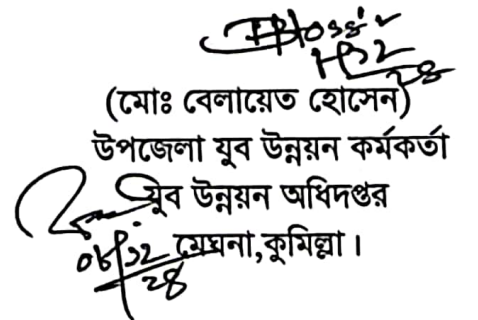 (মোঃ বেলায়েত হোসেন)
উপজেলা যুব উন্নয়ন কর্মকর্তা
যুব উন্নয়ন অধিদপ্তর
মেঘনা,কুমিল্লা।